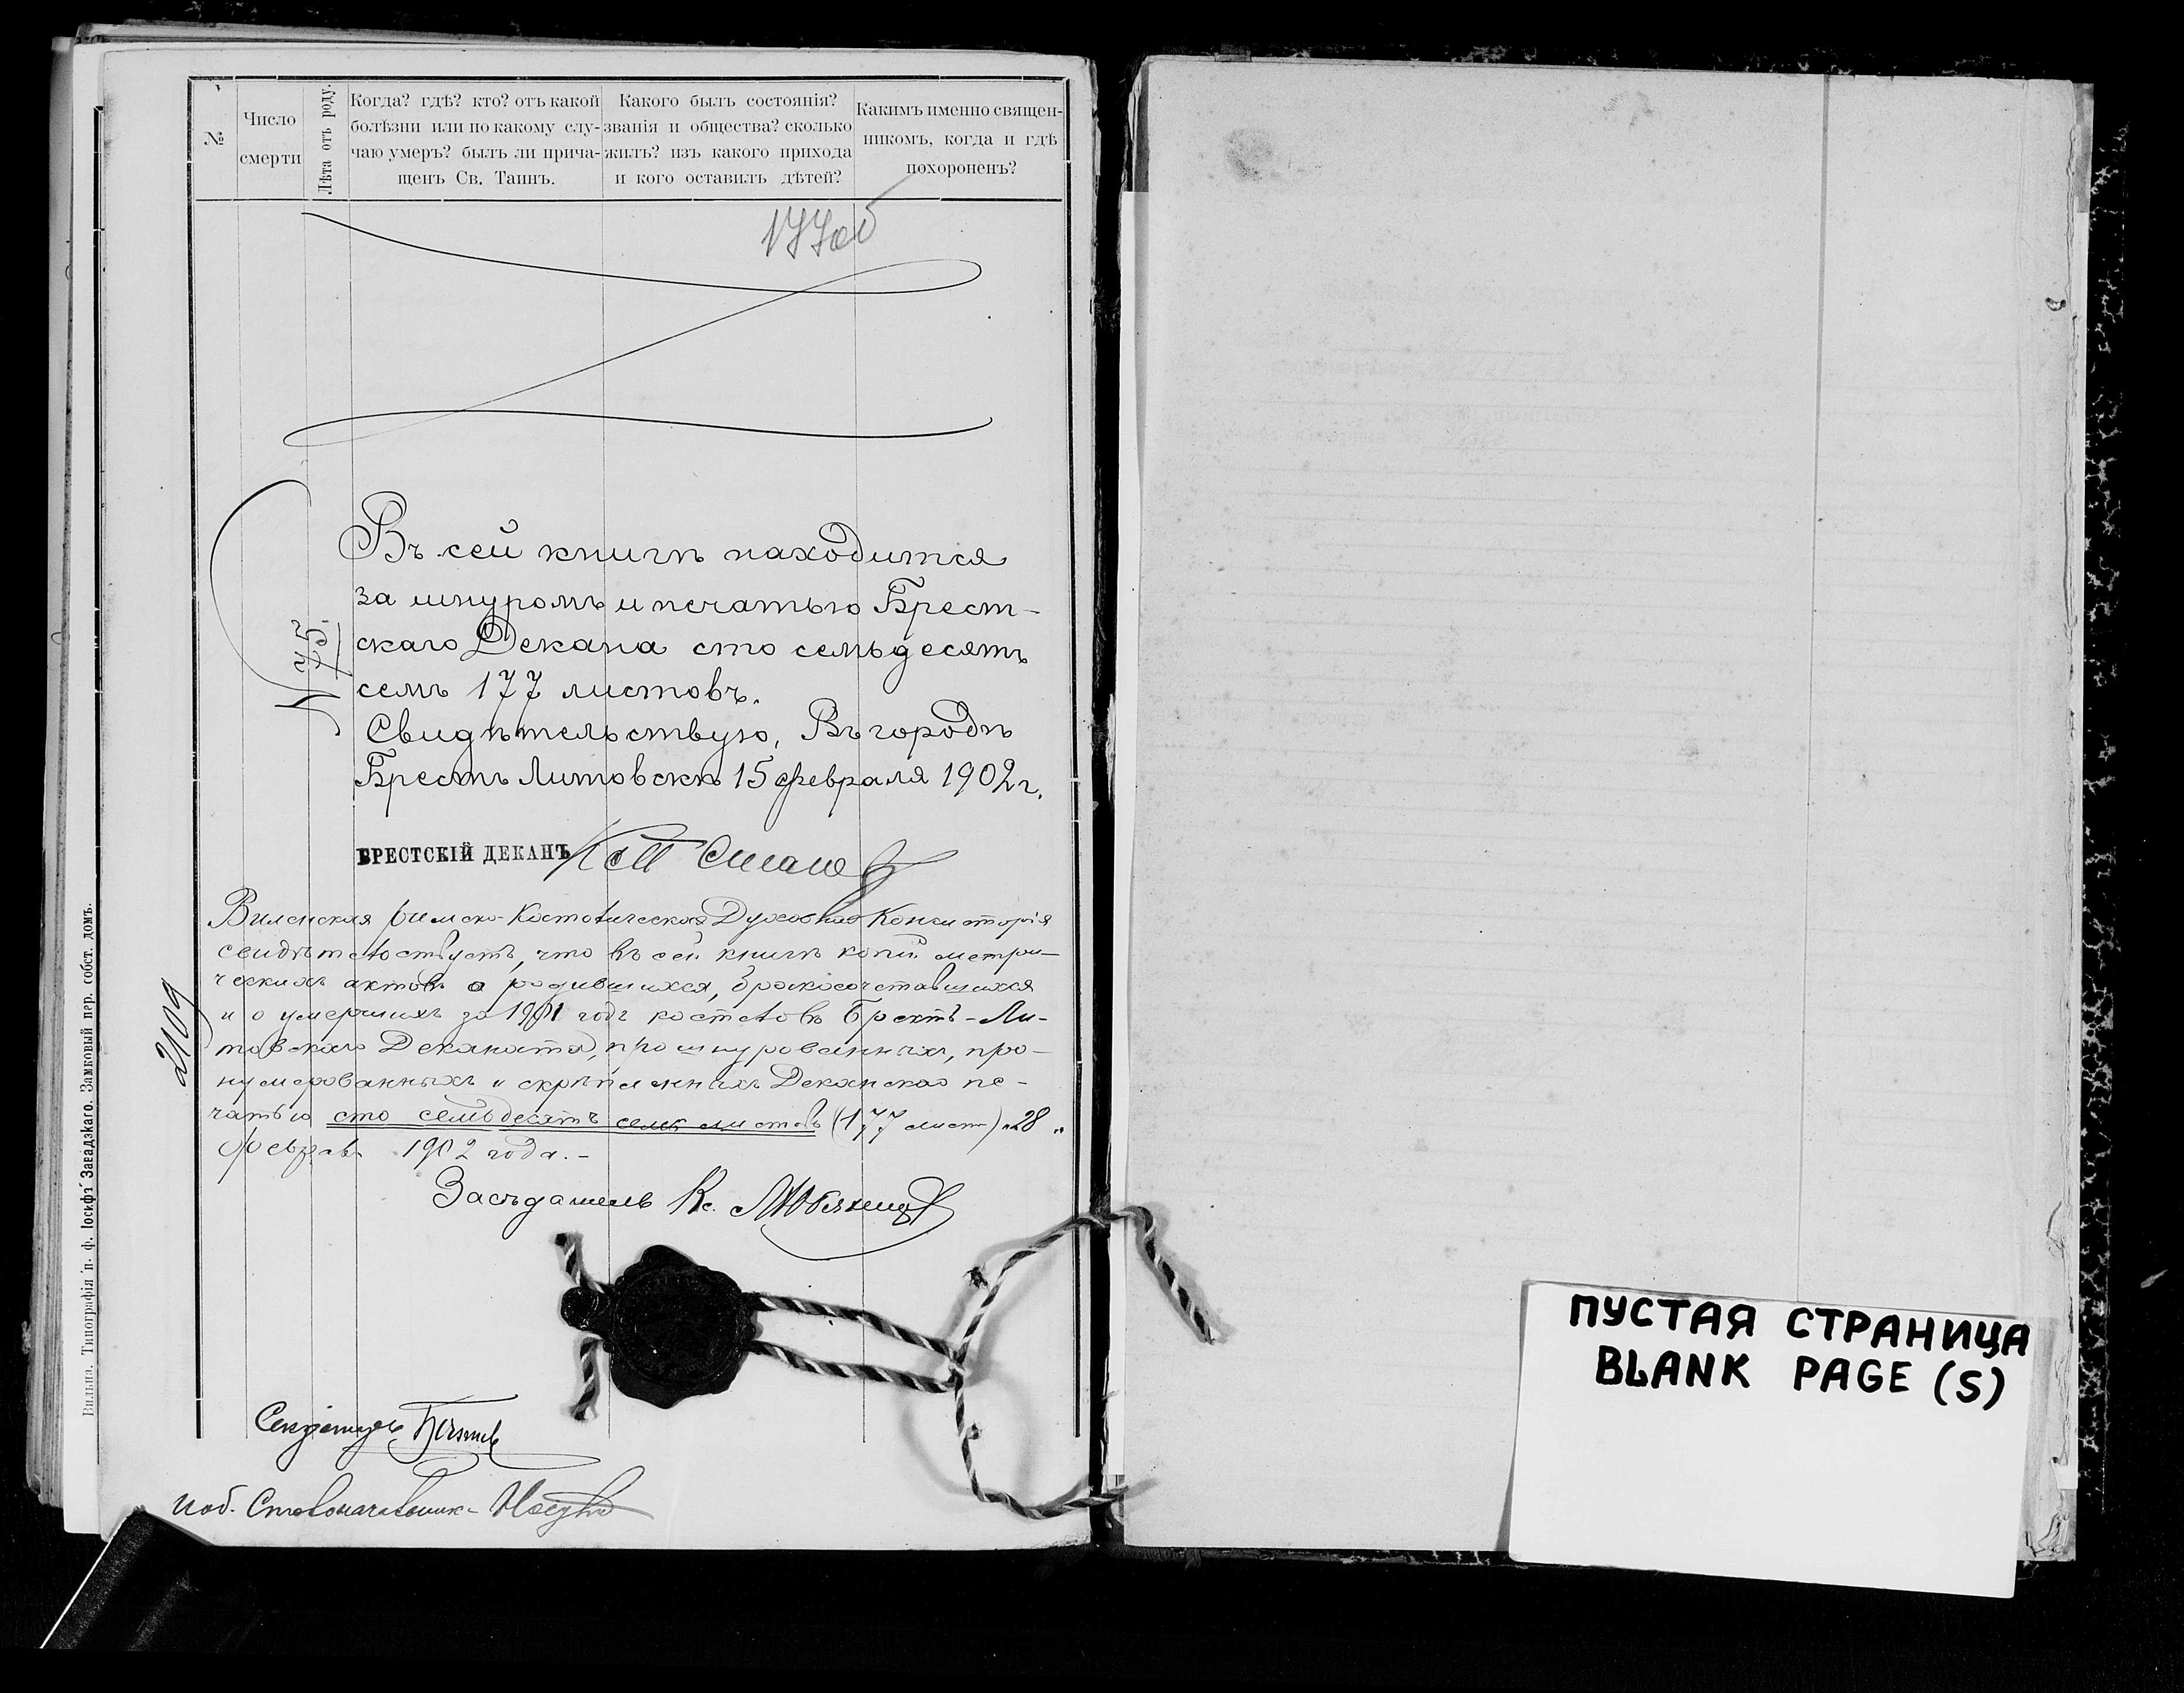 №
Число
смерти
Лѣта отъ роду.
Когда? гдѣ? кто? отъ какой
болѣзни или по какому слу-
чаю умеръ? былъ ли прича-
щенъ Св. Таинъ.
Какого былъ состоянія?
званія и общества? сколько
жилъ? изъ какого прихода
и кого оставилъ дѣтей?
Какимъ именно священ-
никомъ, когда и гдѣ
похороненъ?
177об
Въ сей книгѣ находится
за шнуромъ и печатью Брест-
скаго Декана сто семьдесятъ
семь 177 листовъ.
Свидѣтельствую, Въ городѣ
Брестъ Литовскѣ 15 февраля 1902 г.
№ 75.
БРЕСТСКІЙ ДЕКАНЪ
Виленская Римско-Католическая Духовная Консисторія
свидѣтельствуетъ, что въ сей книгѣ копій метри-
ческихъ актовъ о родившихся, бракосочетавшихся
и о умершихъ за 1901 годъ костеловъ Брестъ-Ли-
товскаго Деканата, прошнурованныхъ, про-
нумерованныхъ и скрѣпленныхъ Деканскою пе-
чатью сто семьдесятъ семь листовъ (177 лист.) „28„
февраля 1902 года.-
2109
Засѣдатель Кс.
Секретарь
И об. Столоначальника-
Вильна. Типографія п. ф. Іосифъ Завадзкаго. Замковый пер. собст. домъ.
ПУСТАЯ СТРАНИЦА
BLANK PAGE (S)